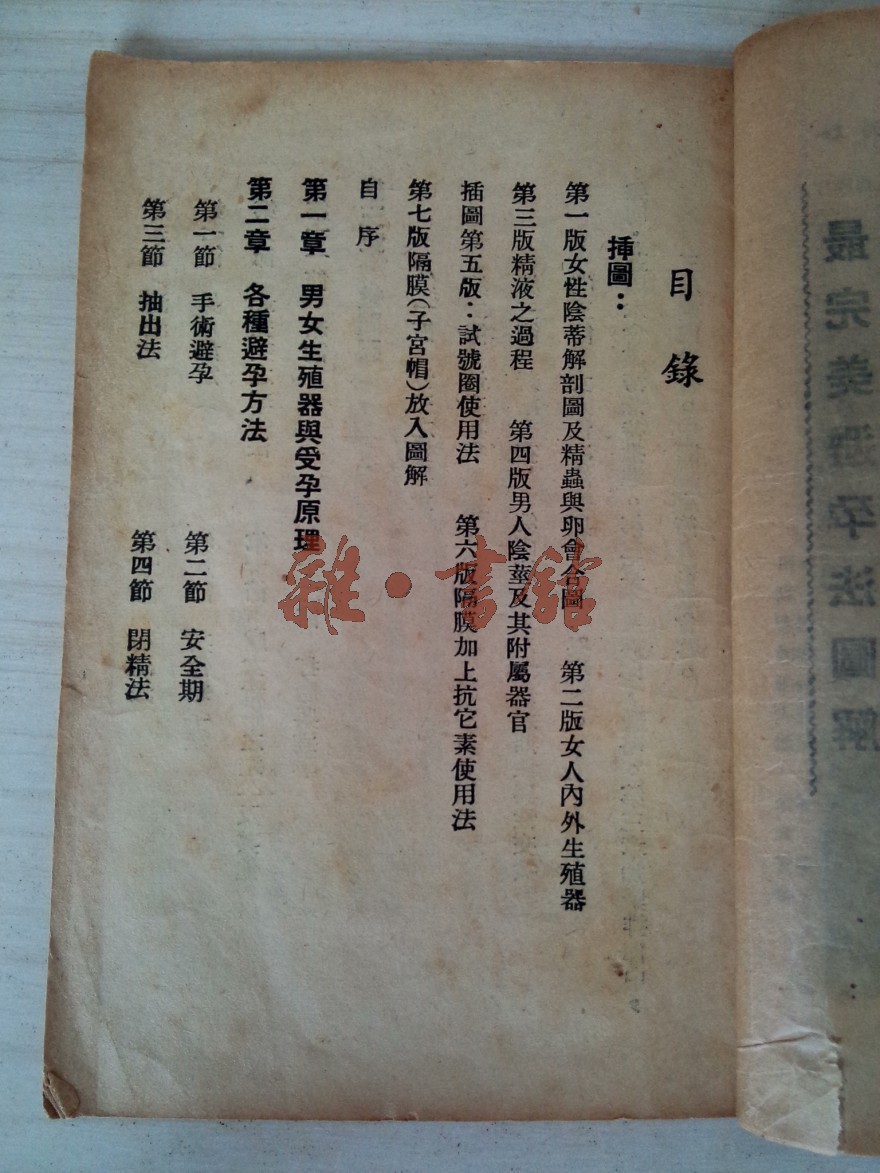 目錄
插圖：
第一版女性陰蒂解剖圖及精蟲與卵會合圖　第二版女人內外生殖器
第三版精液之過程　第四版男人陰莖及其附屬器官
插圖第五版：試號圈使用法　第六版隔膜加上抗它素使用法
第七版隔膜（子宮帽）放入圖解
自序
第一章　男女生殖器與受孕原理
第二章　各種避孕方法
第一節　手術避孕　第二節　安全期
第三節　抽出法　第四節　閉精法
雜·書館
最完美避孕法圖解